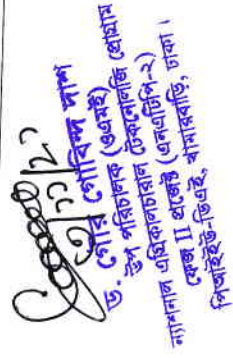 ড. গৌর গোবিন্দ দাশ
উপ পরিচালক (এএমই)
ন্যাশনাল এগ্রিকালচারাল টেকনোলজি প্রোগ্রাম
ফেজ II প্রজেক্ট (এনএটিপি-২)
পিআইইউ-ডিএই, খামারবাড়ি, ঢাকা।